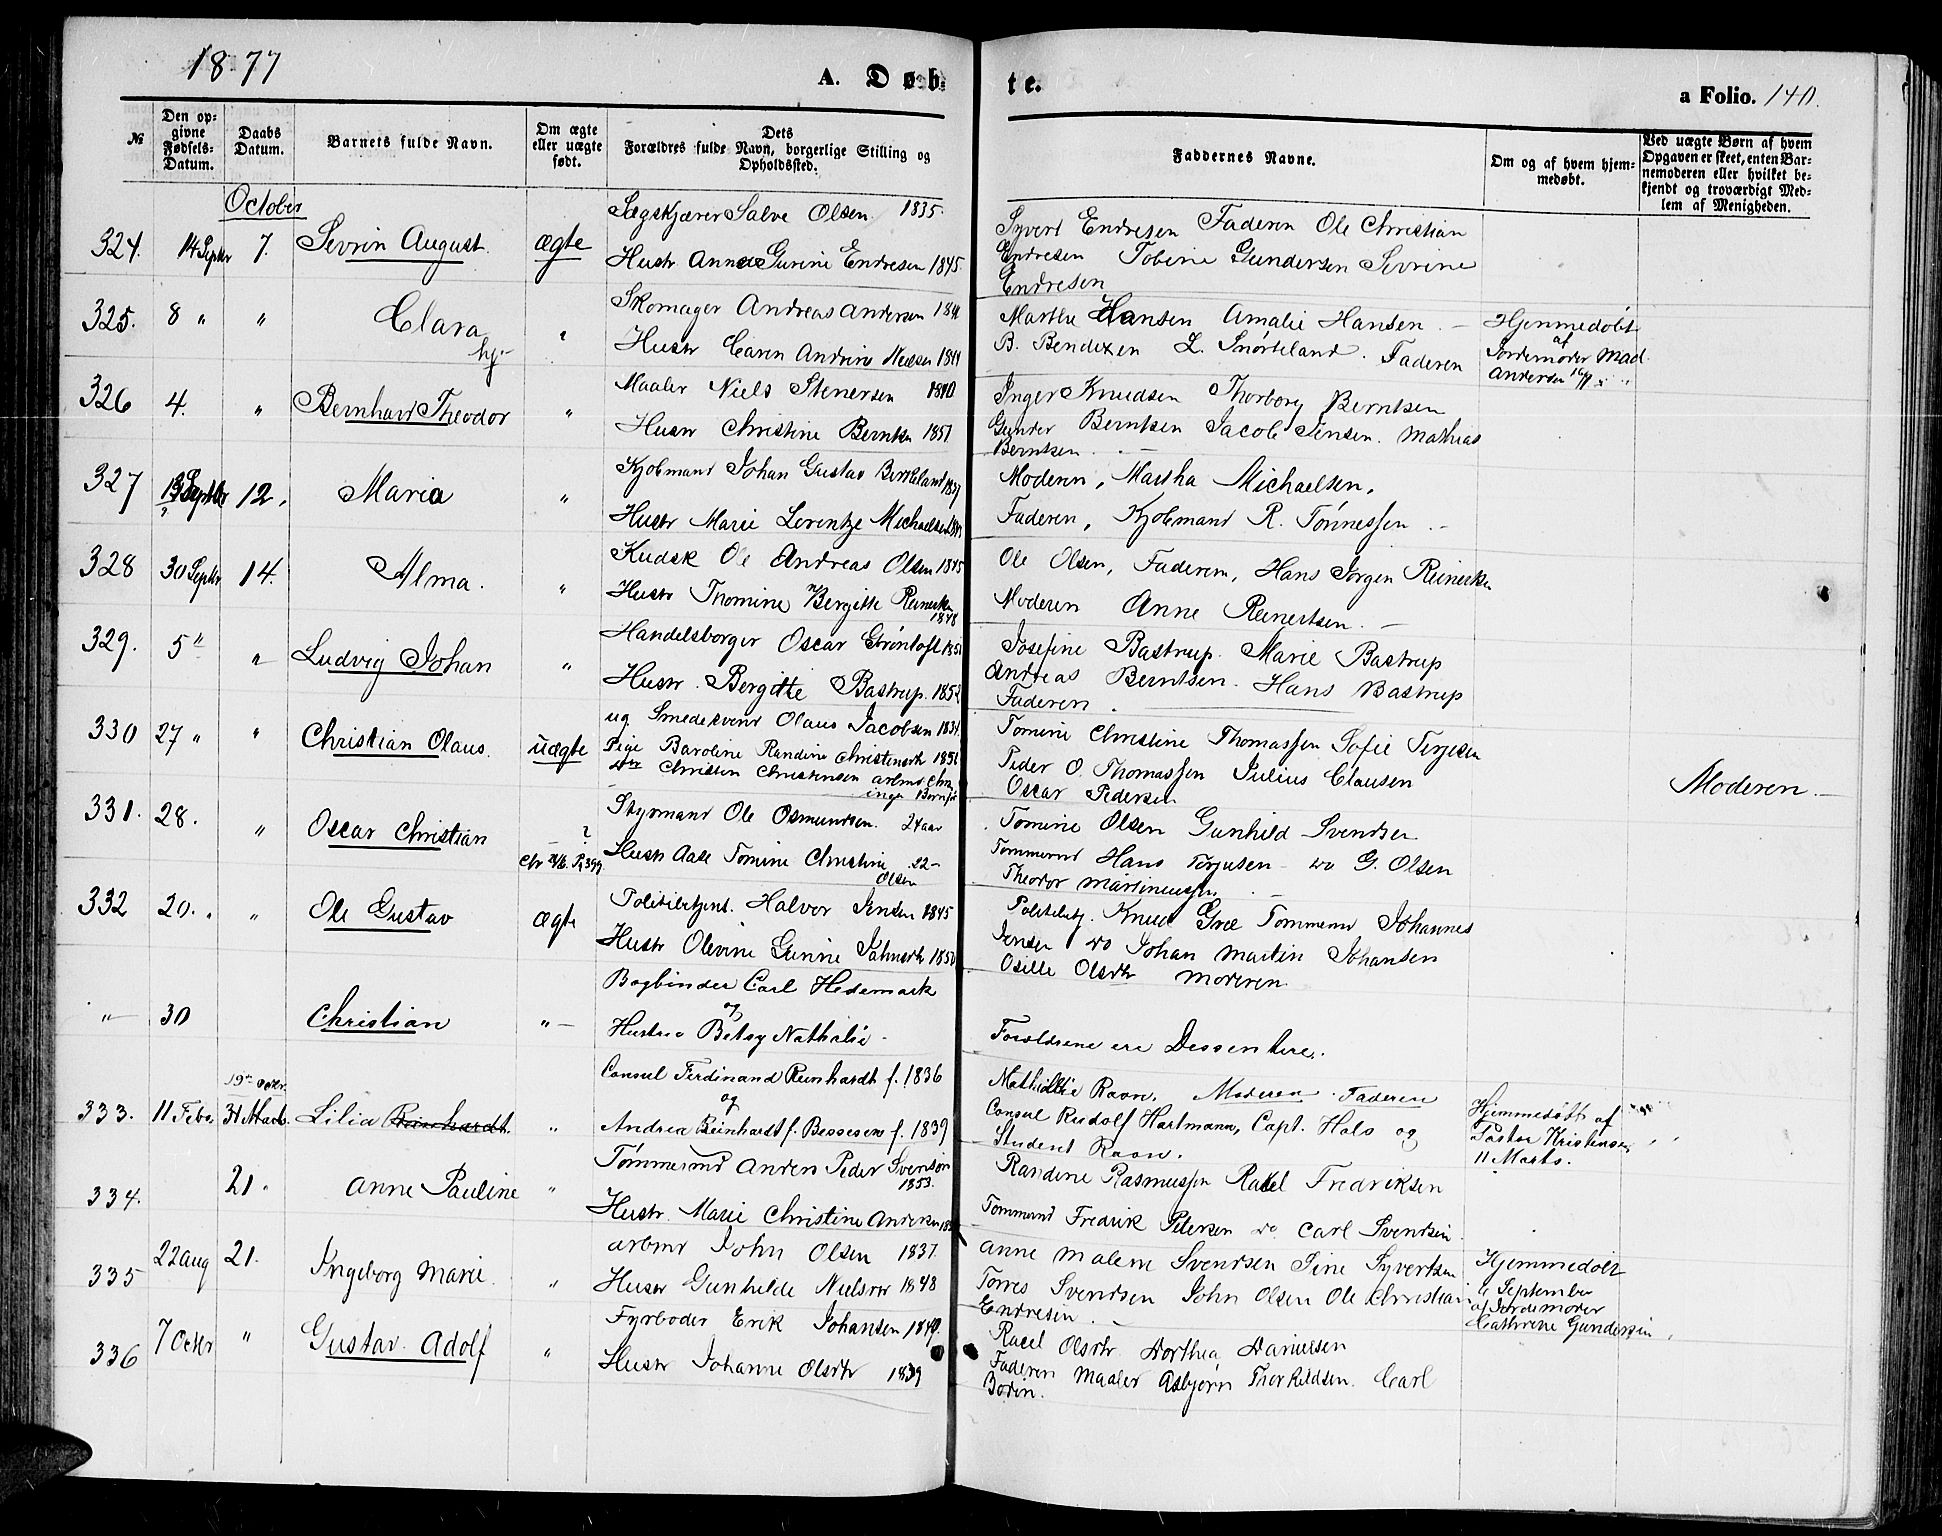 1877
A. Døb-
te.
a Folio. 140.
№
Den op-
givne
Fødsels-
Datum.
Daabs
Datum.
Barnets fulde Navn.
Om ægte
eller uægte
født.
Dets
Forældres fulde Navn, borgerlige Stilling og
Opholdssted.
Faddernes Navne.
Om og af hvem hjem-
medøbt.
Ved uægte Børn af hvem
Opgaven er skeet, enten Bar-
nemoderen eller hvilket be-
kjendt og troværdigt Med-
lem af Menigheden.
October
324. 14 Septbr 7. Sevrin August. ægte
Sagskjærer Salve Olsen. 1835.
Hustr Anne Gurine Endresen 1845.
Syvert Endresen Faderen Ole Christian
Endresen Tobine Gundersen Sevrine
Endresen
325. 8 " " Clara "
hj
Skomager Andreas Andersen
Hustr Caren Andrine
Marthe Hansen Amalie Hansen. –
B. Bendixen L. Snørteland. Faderen
Hjemmedøbt
af
Jordemoder Mad.
Andersen
326 4. " Bernhard Theodor "
Maaler Niels Stenersen 1840
Hustr Christine Berntsen 1851
Inger Knudsen Thorborg Berntsen
Gunder Berntsen Jacob Jensen. Mathias
Berntsen. –
327 13 Septbr 12. Maria "
Kjøbmand Johan Gustav
Hustr Marie Lorentze Michaelsen
Moderen, Martha Michaelsen,
Faderen, Kjøbmand R. Tønnessen. –
328 30 Septbr 14. Alma. "
Kudsk Ole Andreas Olsen 1845
Hustr Thomine Bergitte
1848
Ole Olsen, Faderen, Hans Jørgen
Moderen Anne Reinertsen. –
329. 5te " Ludvig Johan "
Handelsborger Oscar Grøntoft
Hustr. Bergitte Bastrup. 1852
Josefine Bastrup. Marie Bastrup
Andreas Berntsen. Hans Bastrup
Faderen.
330 27 " " Christian Olaus. uægte
ug Smedesvend Olaus Jacobsen 1834
Pige Baroline Randine Christensdtr 1851
Christen Christensen
Tomine Christine Thomassen Sofie Terjesen
Peder O. Thomassen Julius Clausen
Oscar Pedersen
Moderen. –
331. 28. " Oscar Christian ?
Styrmand Ole Osmundsen. 24 aar
Hustr Aase Tomine Christine 22 –
Olsen
Tomine Olsen Gunhild Svendsen
Tømmermd Hans Terjesen – do G. Olsen
Theodor Martinussen –
332 20. " " Ole Gustav ægte
Politibetjent. Halvor Jensen 1845
Hustr Olevine Gurine
Politibetj. Knud Tømmermd Johannes
Jensen do Johan Martin Johansen
Osille Olsdtr Moderen.
" – 30 Christian " –
Bogbinder Carl Hedemark
og
Hustru Betsy Nathalie –
Forældrene ere Dessentere.
333. 11 Febr. 19de Octbr. 31 Marts. Lilia Reinhardt. "
Consul Ferdinand Reinhardt f. 1836
og
Andrea Reinhardt f. Bessesen f. 1839
Mathilde Ravn. Moderen. Faderen
Consul Rudolf Hartmann, Capt. Hals og
Student Ravn.
Hjemmedøbt af
Pastor Kristensen
11 Marts.
334. 21. Anne Pauline "
Tømmermd Anders Peder Svensen
1853.
Hustr. Marie Christine Andersen
Randine Rasmussen Rakel Fredriksen
Tømmermd Fredrik Petersen do. Carl Svendsen.
335 22 Aug 21. Ingeborg Marie. "
Arbmd John Olsen 1837.
Hustr Gunhilde Nielsdtr 1848
Anne Malene Svendsen Sine Syvertsen
Torres Svendsen John Olsen Ole Christian
Endresen. –
Hjemmedøbt
6 September
af Jordemoder
Cathrine Gundersen
336 7 Octbr " Gustav Adolf "
Fyrbøder Erik Johansen 1849.
Hustr Johanne Olsdtr 1839
Racel Olsdtr Dorthea Danielsen
Faderen Maaler Asbjørn Thorkildsen. Carl
Bodin.